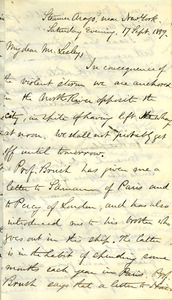 Steamer Arago, near New York.
Saturday Evening, 17 Sept. 1859.
My dear Mr. Lesley,
In consequence of
the violent storm we are anchored
in the North River opposite the
city, in spite of having left
at noon. We shall not probably get
off until tomorrow.
Prof. Brush has given me a
letter to Saemann of Paris and
to Percy of London, and has also
introduced me to his brother who
goes out in this ship. The latter
is in the habit of spending some
months each year in Paris. Prof.
Brush says that a letter to